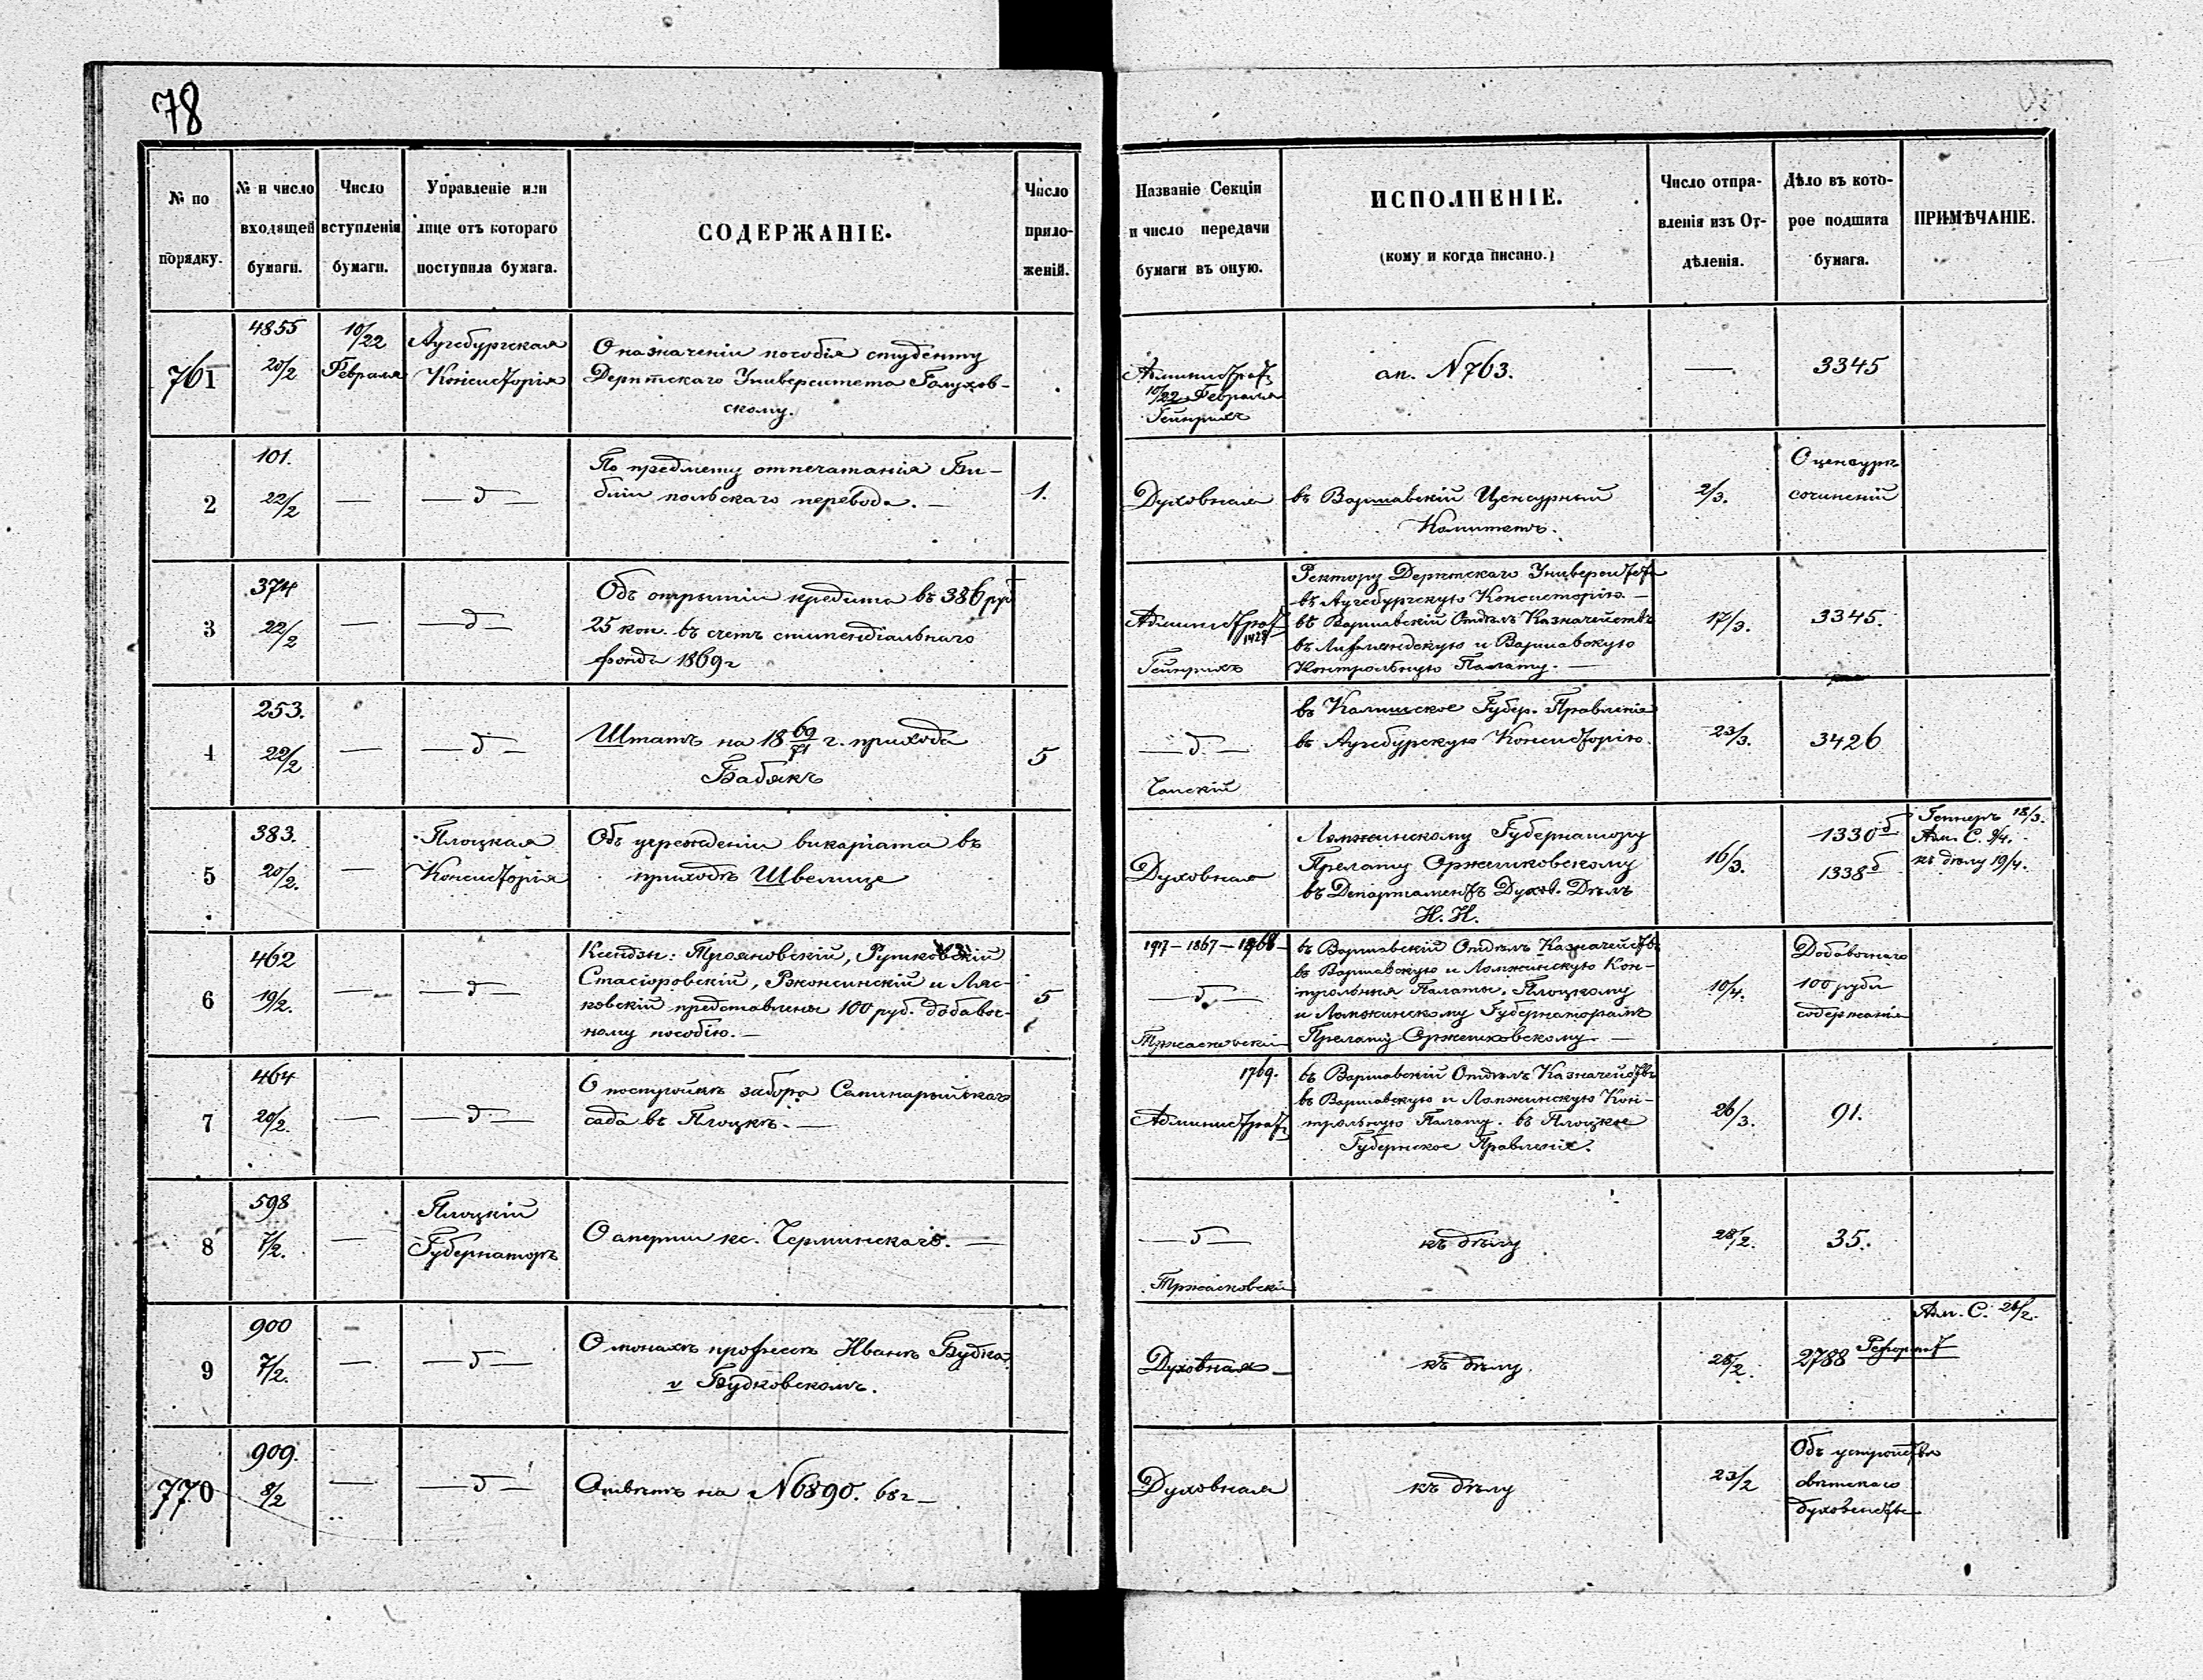 78
№ по
порядку.
№ и число
входящей
бумаги.
Число
вступленія
бумаги.
Управленіе или
лице отъ котораго
поступила бумага.
СОДЕРЖАНІЕ.
Число
прило-
женій.
Названіе Секціи
и число передачи
бумаги въ оную.
ИСПОЛНЕНІЕ.
(кому и когда писано.)
Число отпра-
вленія изъ От-
дѣленія.
Дѣло въ кото-
рое подшита
бумага.
ПРИМѢЧАНІЕ.
761
4855
20/2
10/22
Февраля
Аугсбургская
Консисторія
О назначеніи пособія студенту
Дерптскаго Университета Голухов-
скому.
Администрат
10/22 Февраля
Гейнрихъ
ап. N 763.
—
3345
2
101.
22/2
—
— д —
По предмету отпечатанія Би-
бліи польскаго перевода. —
1.
Духовная
въ Варшавскій Цензурный
Комитетъ.
2/3.
О цензурѣ
сочиненій
3
374
22/2
—
— д —
Объ открытіи кредита въ 386 руб
25 коп. въ счетъ стипендіальнаго
фонда 1869 г
Администрат
1428
Гейнрихъ
Ректору Дерптскаго Университета
въ Аугсбургскую Консисторію —
въ Варшавскій Отдѣлъ Казначейства
въ Лифляндскую и Варшавскую
Контрольную Палату. —
17/3.
3345.
4
253.
22/2
—
— д —
Штатъ на 18 69/71 г. прихода
Бабякъ
5
— д —
въ Калишское Губер. Правленіе
въ Аугсбургскую Консисторію.
23/3.
3426
5
383.
20/2.
—
Плоцкая
Консисторія
Объ учрежденіи викаріата въ
приходѣ Швелице
Духовная
Ломжинскому Губернатору
Прелату Оржешковскому
въ Департаментъ Духов. Дѣлъ
И. И.
16/3.
1330 б
1338 б
18/3.
Адм. С. 9/4.
къ дѣлу 19/4.
6
462
19/2.
—
— д —
Ксендзы: Трояновскій, Рутковскій
Стасіоровскій, Ржонсинскій и Ляс-
ковскій представлены 100 руб. добавоч-
ному пособію. —
5
1917 – 1867 – 1868 –
— д —
Тржасковскій
въ Варшавскій Отдѣлъ Казначейства
въ Варшавскую и Ломжинскую Кон-
трольныя Палаты. Плоцкому
и Ломжинскому Губернаторамъ
Прелату Оржешковскому. —
10/4.
Добавочнаго
100 рубл
содержанія
7
464
20/2.
—
— д —
О постройкѣ забора Семинарыйскаго
сада въ Плоцкѣ. —
1769.
Администрат
въ Варшавскій Отдѣлъ Казначейства
въ Варшавскую и Ломжинскую Кон-
трольную Палату. въ Плоцкое
Губернское Правленіе.
26/3.
91.
8
598
7/2.
—
Плоцкій
Губернаторъ
О смерти кс. Черминскаго. —
— д —
Тржасковскій
къ дѣлу
28/2.
35.
9
900
7/2.
—
— д —
О монахѣ професѣ Иванѣ Будка.
и Будковскомъ.
Духовная —
къ дѣлу
28/2.
2788
Адм. С. 26/2.
770
909.
8/2
—
— д —
Отвѣтъ на N 6890. 68 г —
Духовная
къ дѣлу
23/2
Объ устройствѣ
свѣтскаго
духовенства